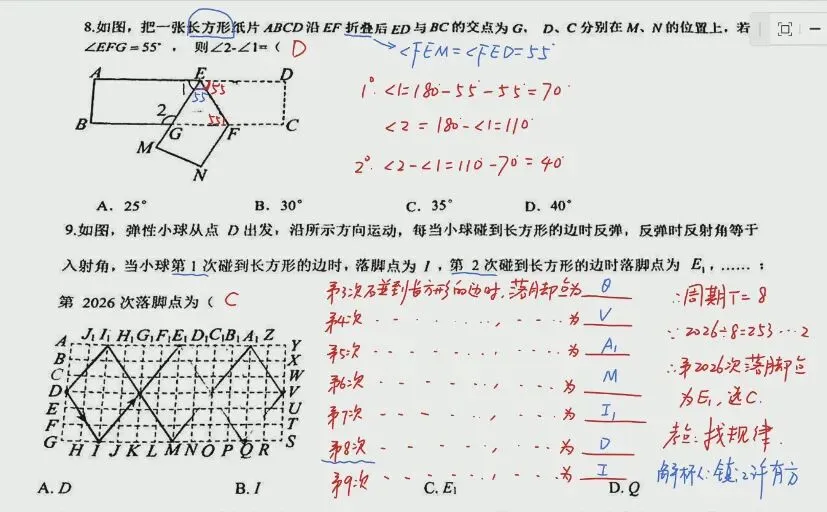 8.如图，把一张长方形纸片 ABCD 沿 EF 折叠后 ED 与 BC 的交点为 G，D、C 分别在 M、N 的位置上，若
∠EFG=55°，则∠2-∠1=( D
∠FEM=∠FED=55°
A E D
1 55 55
2 55
B G F C
M
N
1° ∠1=180-55-55=70°
∠2=180-∠1=110°
2° ∠2-∠1=110-70°=40°
A. 25° B. 30° C. 35° D. 40°
9.如图，弹性小球从点 D 出发，沿所示方向运动，每当小球碰到长方形的边时反弹，反弹时反射角等于
入射角，当小球第 1 次碰到长方形的边时，落脚点为 I，第 2 次碰到长方形的边时落脚点为 E₁，……；
第 2026 次落脚点为（ C
第3次碰到长方形的边时，落脚点为 Q
第4次 为 V
第5次 为 A₁
第6次 为 M
第7次 为 I₁
第8次 为 D
第9次 为 I
∴周期T=8
∵2026÷8=253…2
∴第2026次落脚点
为E₁,选C.
考点:找规律.
A J₁ I₁ H₁ G₁ F₁ E₁ D₁ C₁ B₁ A₁ Z Y
B X
C W
D V
E U
F T
G H I J K L M N O P Q R S
A. D B. I C. E₁ D. Q